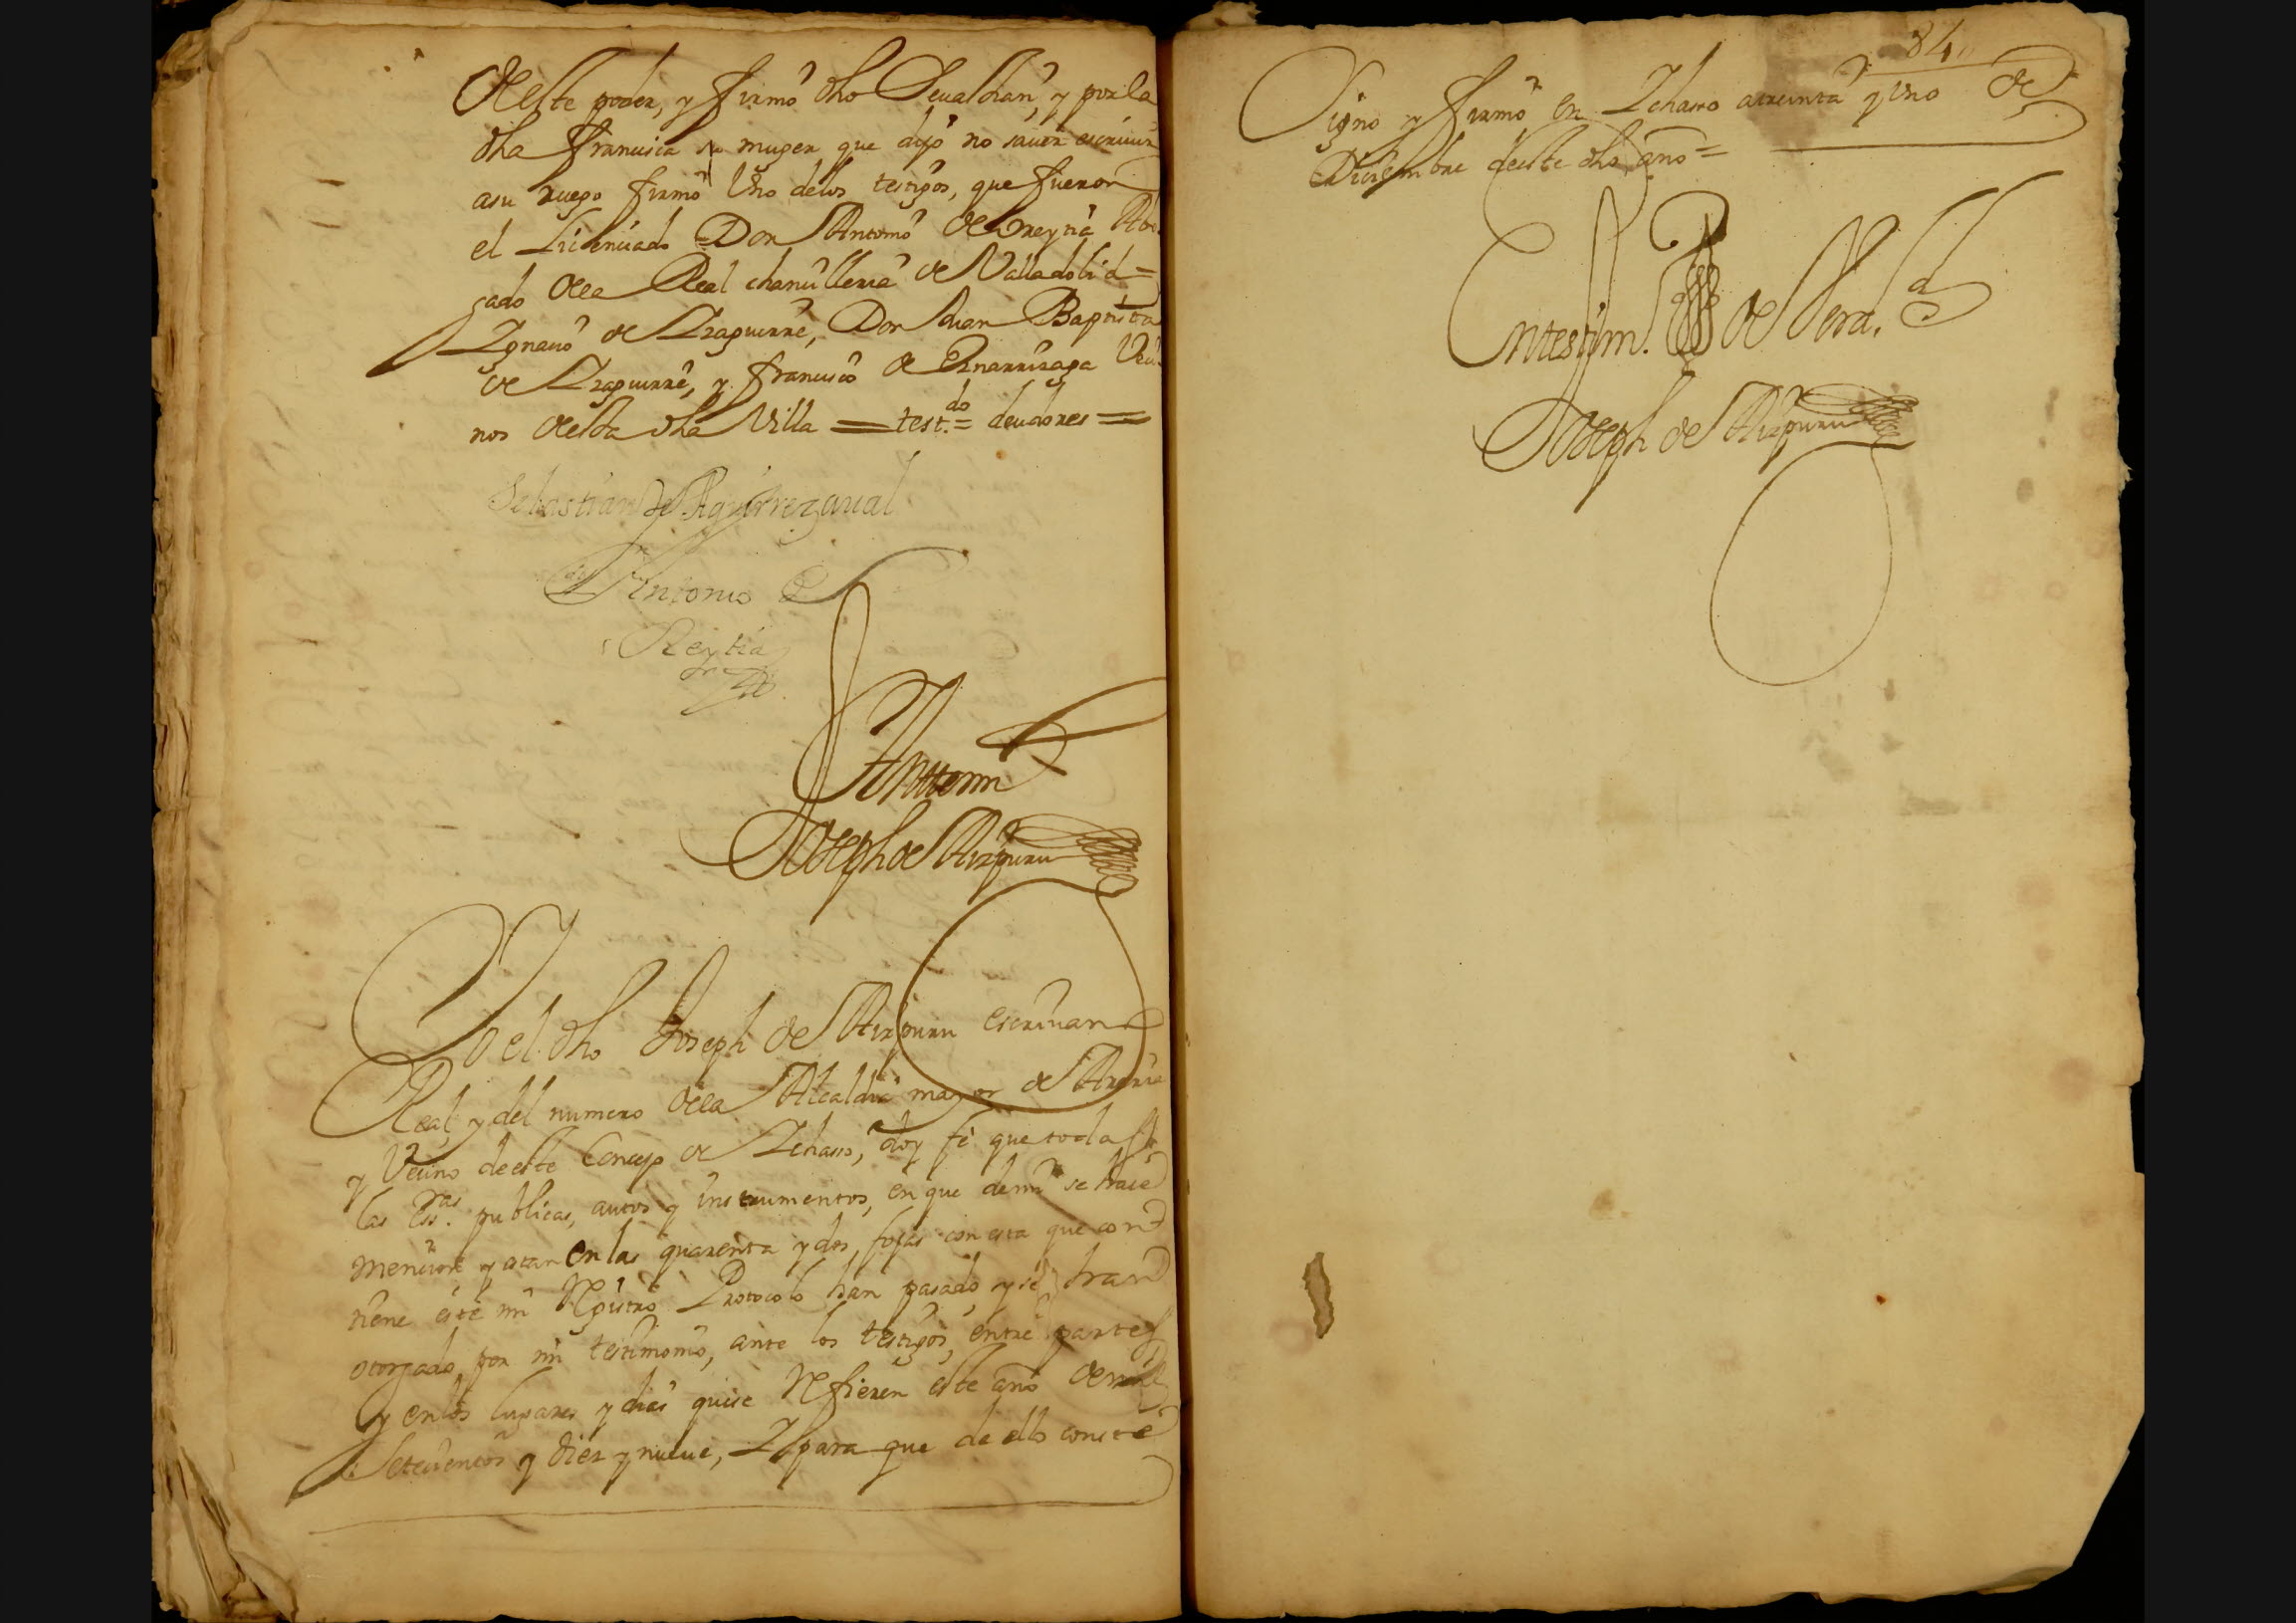 deste poder, y firmó dho Seuastian, y por la
dha Francisca su muger que dijo no sauer escriuir
asu ruego firmó Vno delos testigos, que fueron
el Licenciado Don Antonio de Areytia Abo-
gado dela Real chancilleria de Valladolid =
Ignacio de Izaguirre, Don Juan Baptista
de Izaguirre, y francisco de Enarrizaga Veci-
nos desta dha Villa = test.do = deudores =
Sebastian de Aguirrezaual
Antonio de
Areytia
Ante mi
Joseph de Aizpuru
Yo el dho Joseph de Aizpuru escriuano
Real, y del numero dela Alcaldia mayor de Areria
y Vecino de este Concejo de Ichasso, doy fe que todas
las Ess.ras publicas, autos y instrumentos, en que de mi se hace
mencion, y atan en las quarenta y dos, fojas con esta que con-
tiene este mi Registro Protocolo han pasado y se han
otorgado por mi testimonio, ante los testigos, entre partes
y enlos lugares y dias quese Refieren este año de mil
Setecientos y diez y nueue, Y para que de ello conste
84
Signo y firmo en Ichasso atreinta y Vno de
Diciembre de este dho año =
Entestim.o de Verd.d
Joseph de Aizpuru